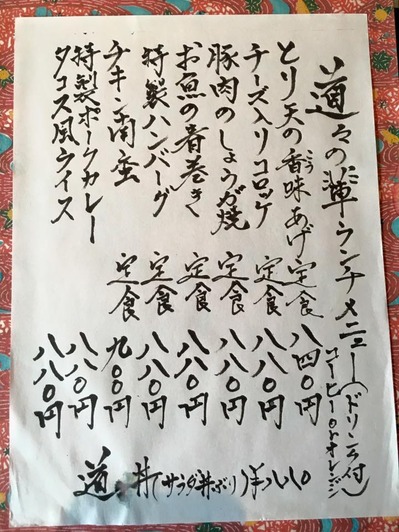 道々の輩ランチメニュー(ドリンク付)
コーヒーorオレンジ
とり天の香味あげ定食 八四〇円
チーズ入りコロッケ定食 八八〇円
豚肉のしょうが焼定食 八八〇円
お魚の春巻き定食 八八〇円
特製ハンバーグ定食 八八〇円
チキン南蛮定食 九〇〇円
特製ポークカレー 八八〇円
タコス風ライス 八八〇円
道丼(サラダ丼ぶり)¥880